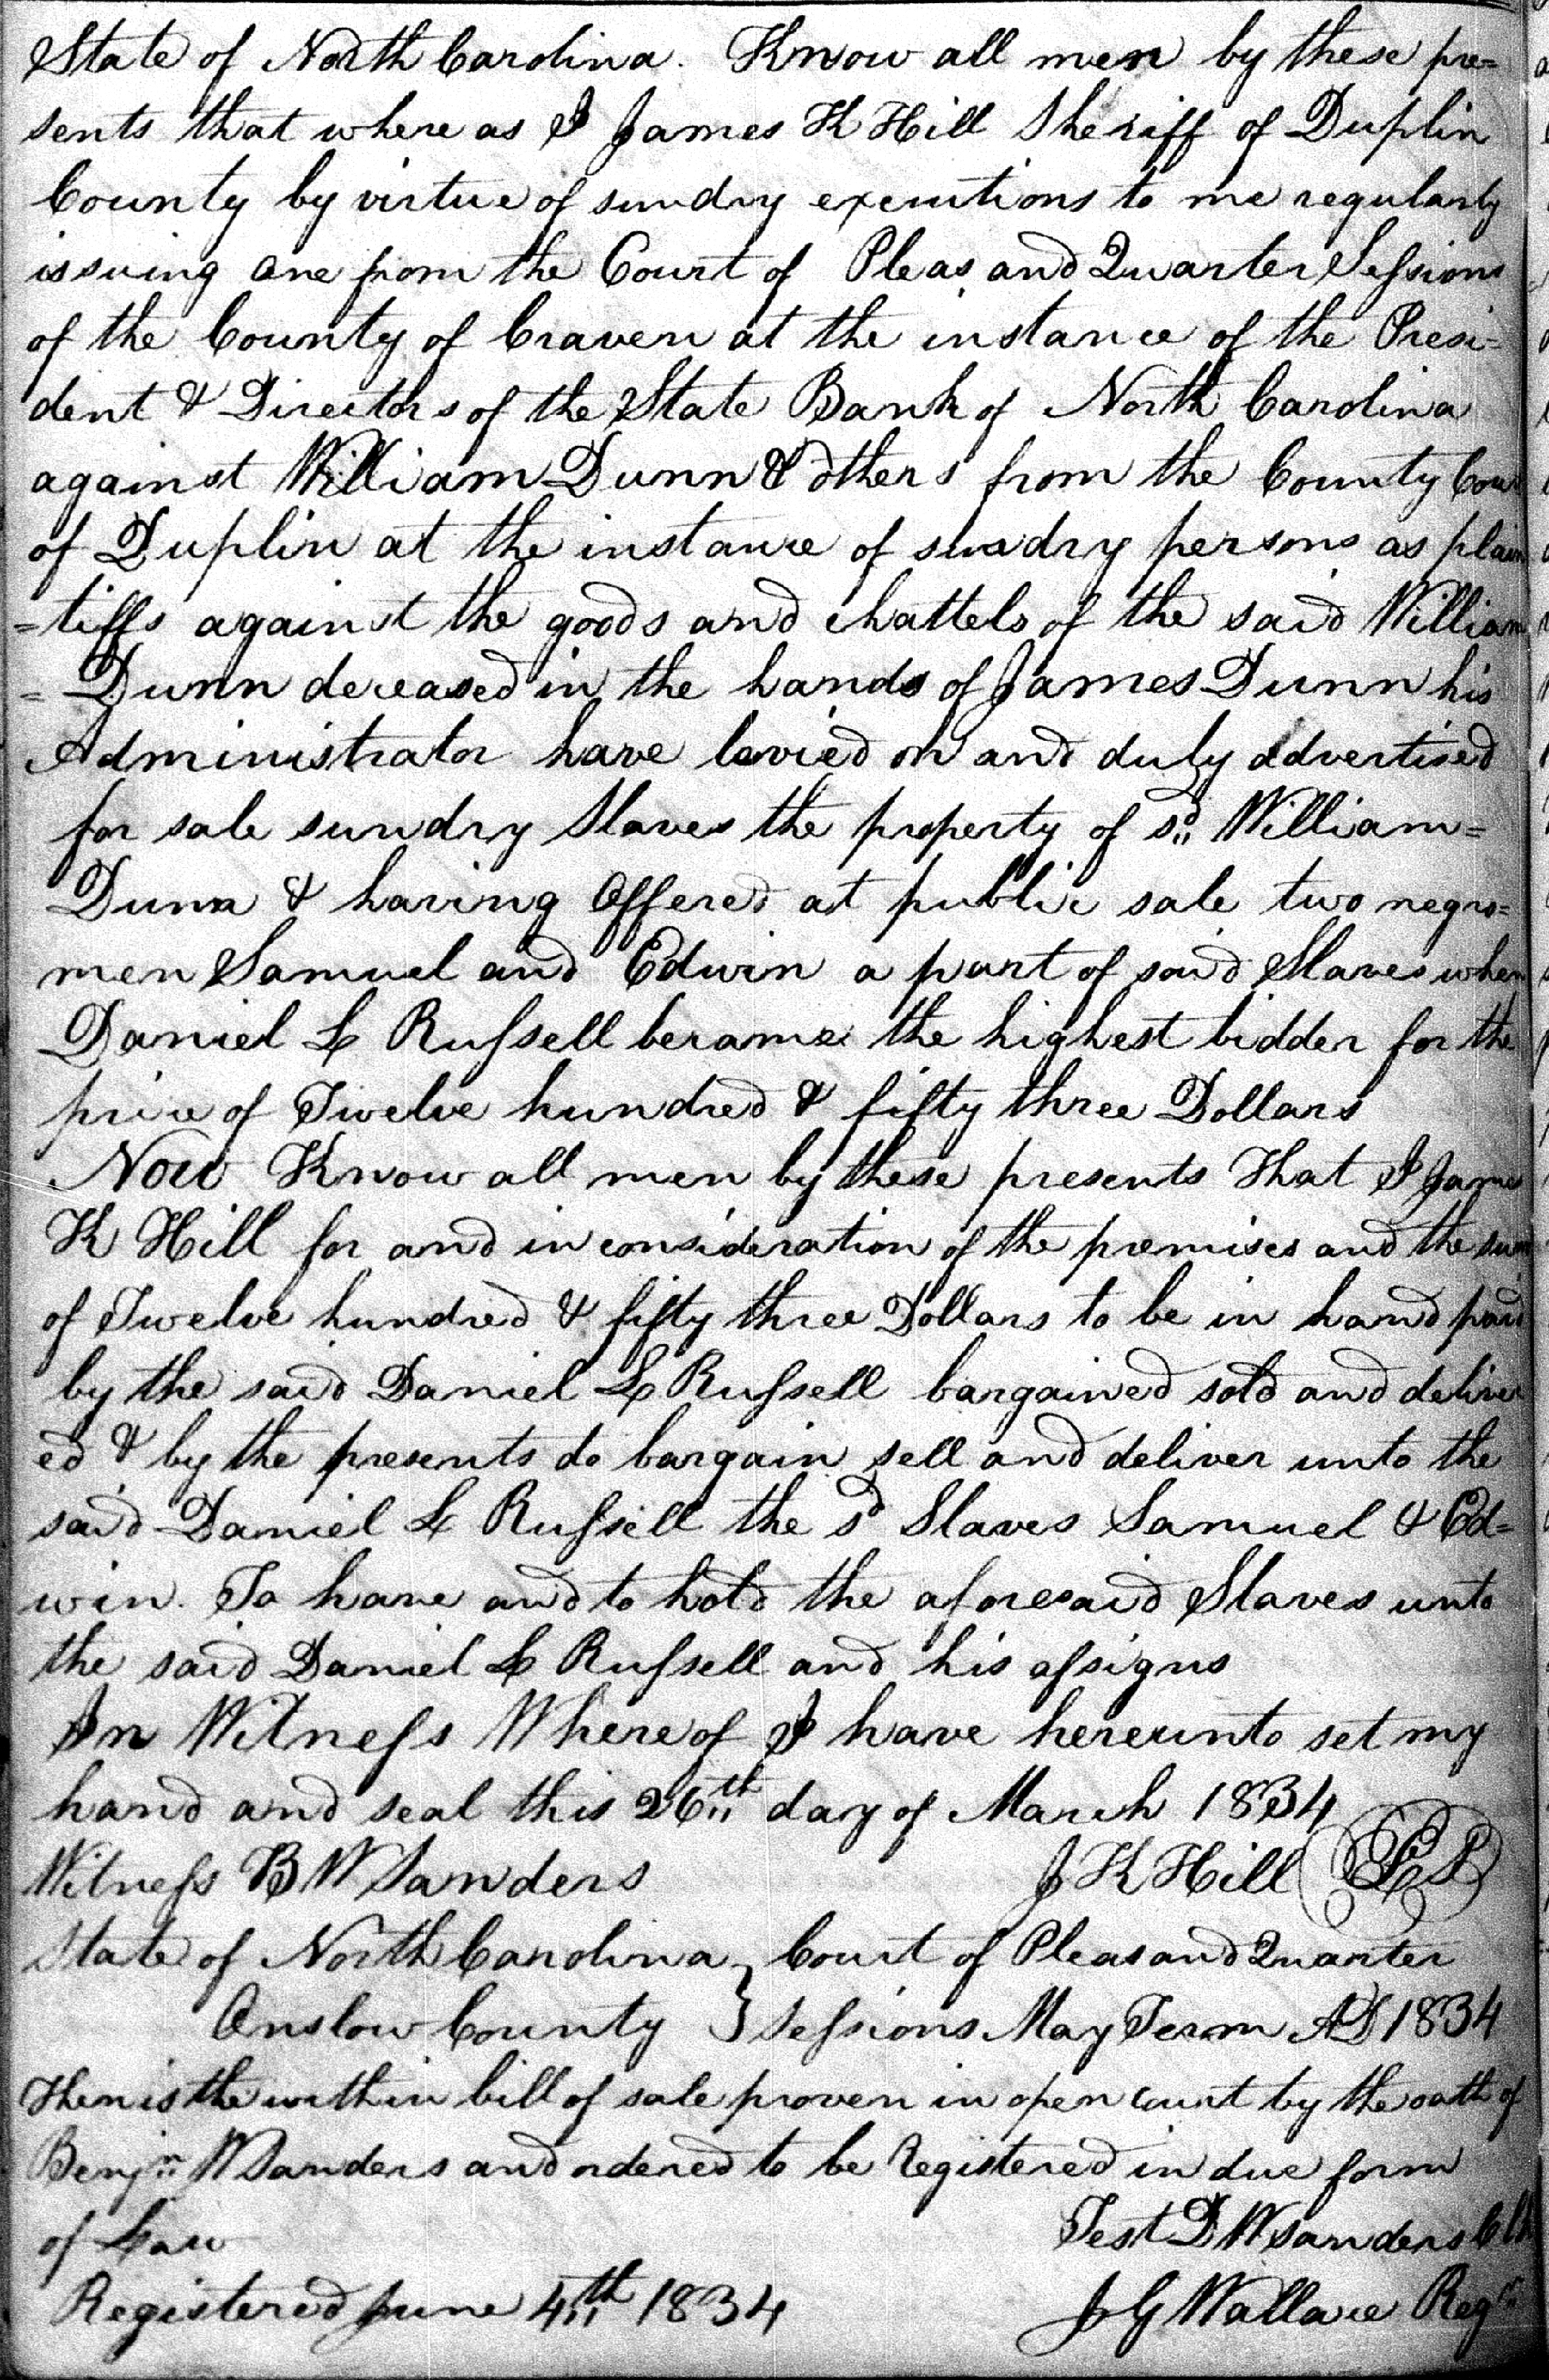 State of North Carolina. Know all men by these pre=
sents that where as I James K Hill Sheriff of Duplin
County by virtue of sundry executions to me regularly
issuing one from the Court of Pleas and Quarter Sessions
of the County of Craven at the instance of the Presi=
dent & Directors of the State Bank of North Carolina
against William Dunn & others from the County Cour
of Duplin at the instance of sundry persons as plain
=tiffs against the goods and chattels of the said William
= Dunn deceased in the hands of James Dunn his
Administrator have levied on and duly advertised
for sale sundry Slaves the property of sd William=
Dunn & having offered at public sale two negro=
men Samuel and Edwin a part of said Slaves when
Daniel L Russell became the highest bidder for the
price of Twelve hundred & fifty three Dollars
Now Know all men by these presents That I James
K Hill for and in consideration of the premises and the sum
of Twelve hundred & fifty three Dollars to be in hand paid
by the said Daniel L Russell bargained sold and deliver
ed & by the presents do bargain sell and deliver unto the
said Daniel L Russell the sd Slaves Samuel & Ed=
win. To have and to hold the aforesaid Slaves unto
the said Daniel L Russell and his assigns
In Witness Where of I have hereunto set my
hand and seal this 26th day of March 1834
Witness B W Sanders J K Hill (LS)
State of North Carolina } Court of Pleas and Quarter
Onslow County } Sessions May Term AD 1834
Then is the within bill of sale proven in open court by the oath of
Benjn W Sanders and ordered to be Registered in due form
of Law Test D W Sanders Clk
Registered June 4th 1834 J G Wallace Regr